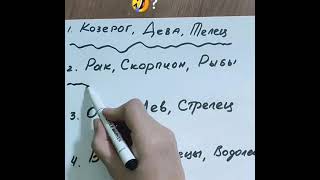 ?
1. Козерог, Дева, Телец
2. Рак, Скорпион, Рыбы
3. Лев, Стрелец
4.